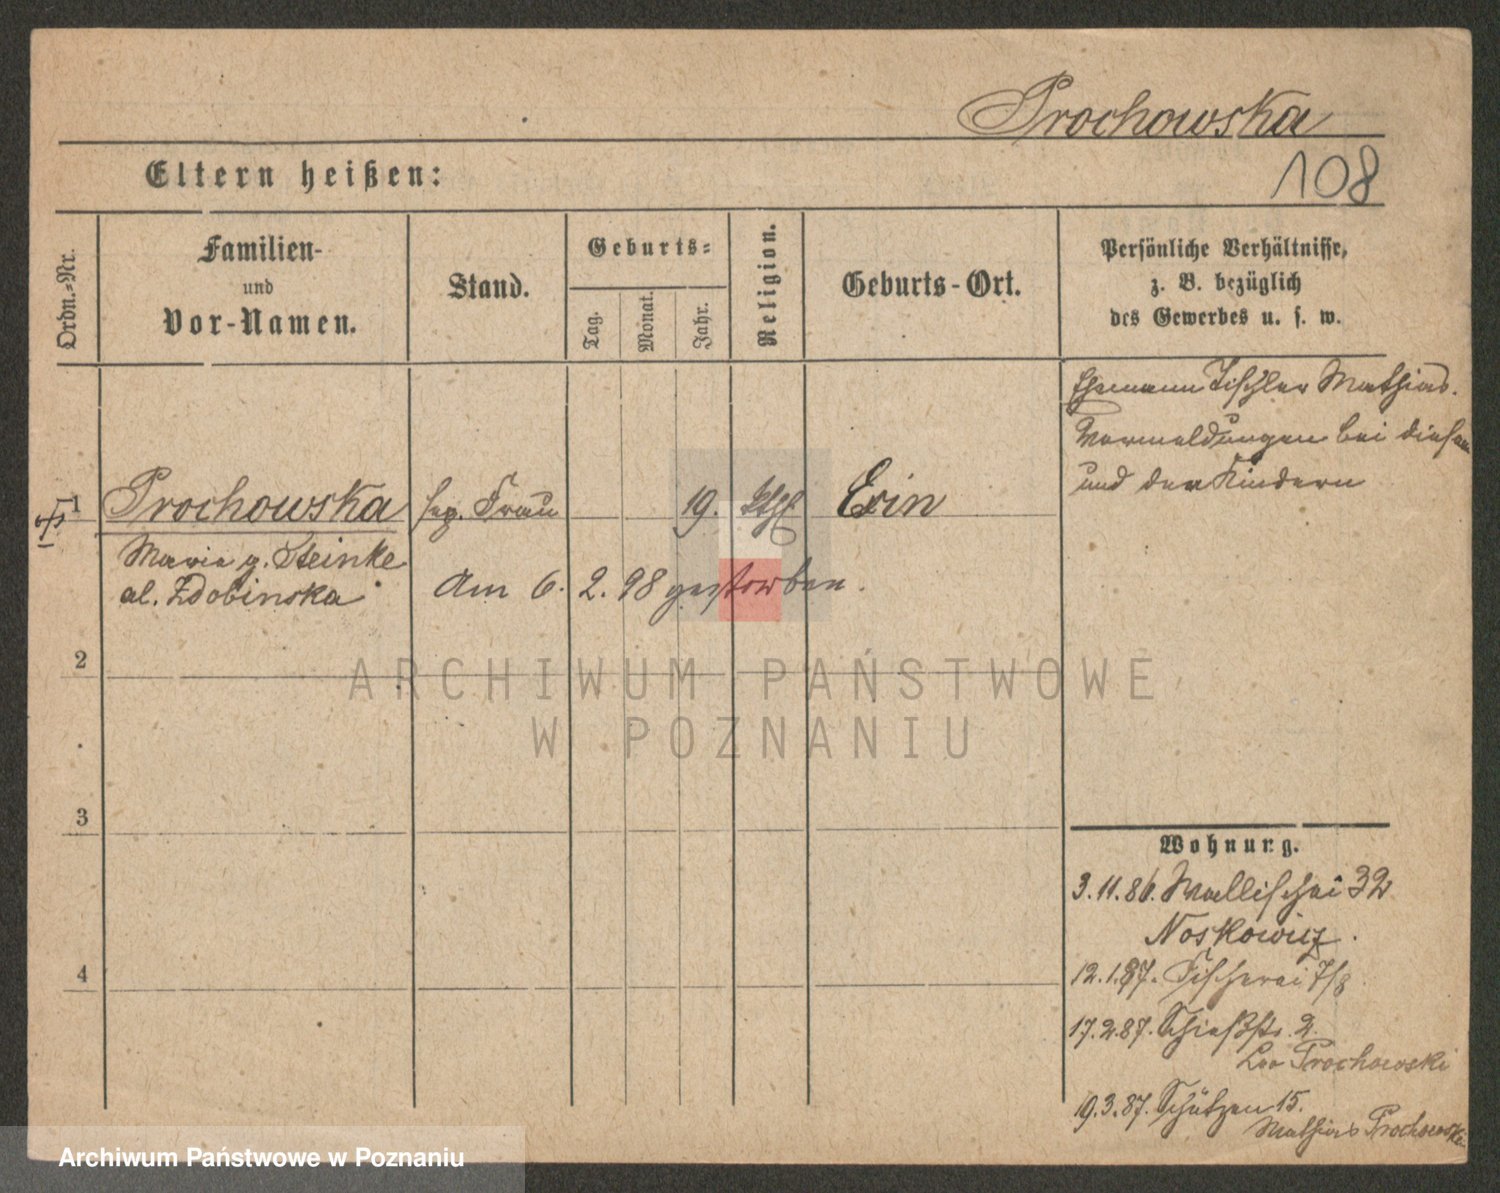 Prochowska
108
Eltern heißen:
Ordn.-Nr.
Familien-
und
Vor-Namen.
Stand.
Geburts-
Tag.
Monat.
Jahr.
Religion.
Geburts-Ort.
Persönliche Verhältnisse,
z. B. bezüglich
des Gewerbes u. s. w.
Ehemann Tischler Mathias.
Vormeldungen bei diesem
und den Kindern
1
Prochowska
sep. Frau
19.
kthl
Exin
Maria g. Steinke
al. Zdobinska
Am 6. 2. 98 gestorben.
2
ARCHIWUM PAŃSTWOWE
W POZNANIU
3
Wohnung.
3.11.86. Wallischei 32
Noskowicz.
4
12.1.87. Fischerei 7/8
17.2.87. Schießstr. 2.
Leo Prochowski
19.3.87. Schützen 15.
Mathias Prochowski
Archiwum Państwowe w Poznaniu